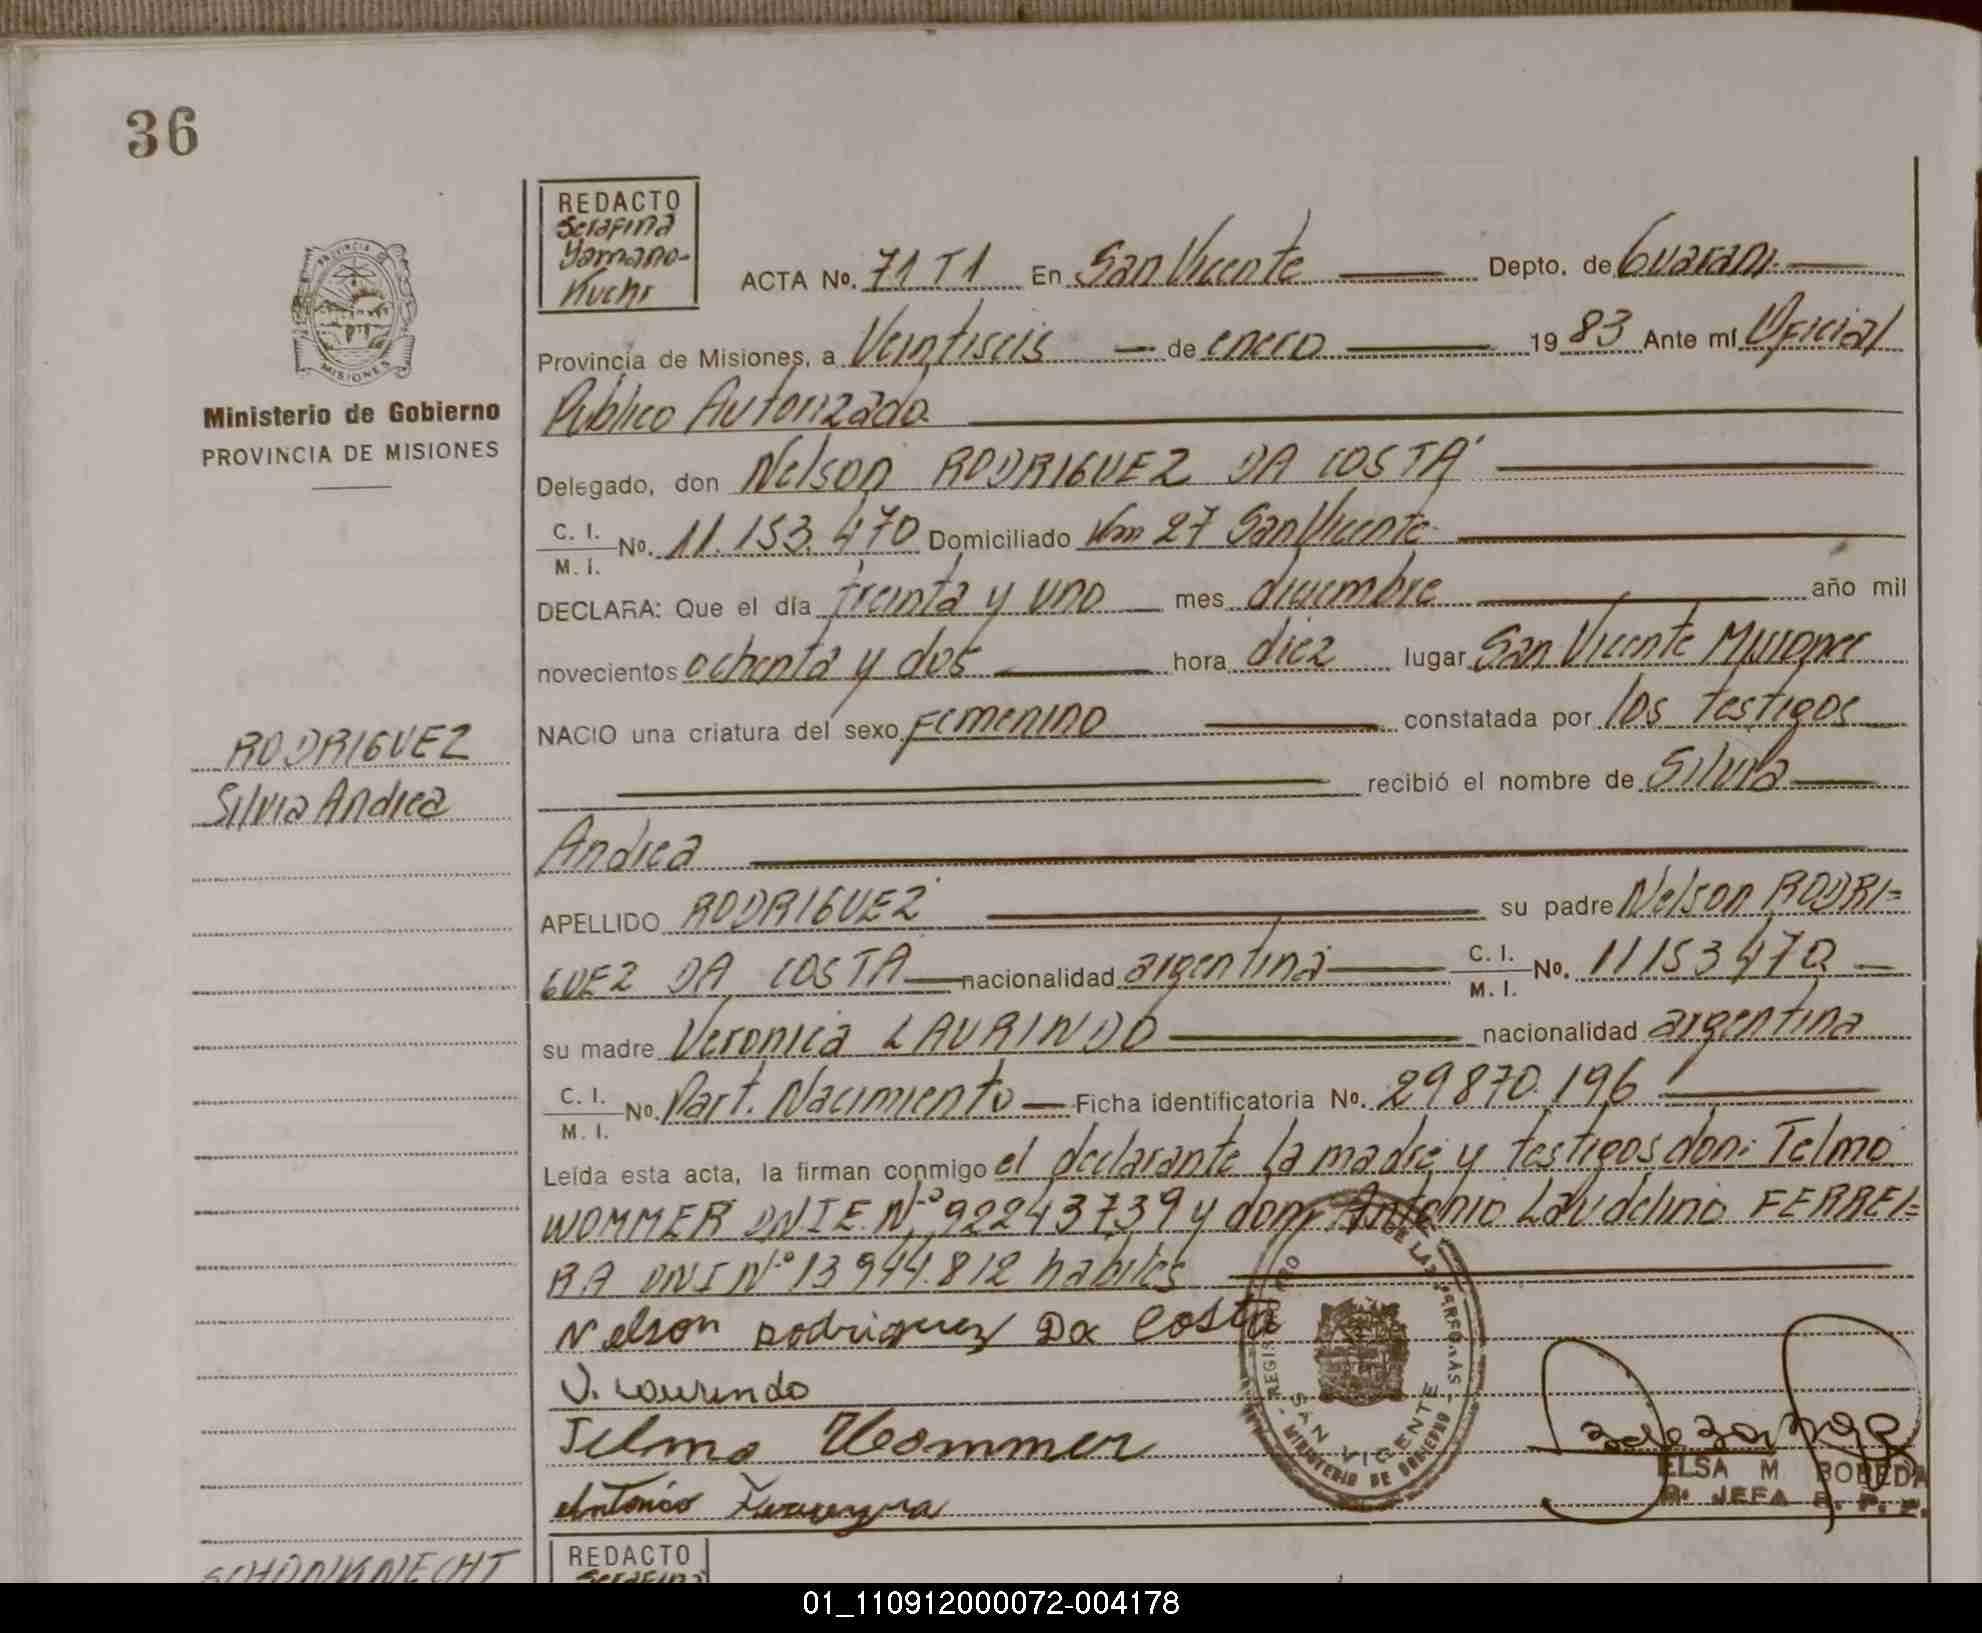 36
REDACTO
Serafina
Yamano-
Kuchi
PROVINCIA DE
MISIONES
Ministerio de Gobierno
PROVINCIA DE MISIONES
ACTA No. 71 T1 En San Vicente Depto. de Guaraní
Provincia de Misiones, a Veintiseis de enero 1983 Ante mí Oficial
Público Autorizado
Delegado, don Nelson RODRIGUEZ DA COSTA
C. I. / M. I. No. 11.153.470 Domiciliado Km 27 San Vicente
DECLARA: Que el día treinta y uno mes diciembre año mil
novecientos ochenta y dos hora diez lugar San Vicente Misiones
NACIO una criatura del sexo Femenino constatada por los testigos
RODRIGUEZ
Silvia Andrea
recibió el nombre de Silvia
Andrea
APELLIDO RODRIGUEZ su padre Nelson RODRI=
GUEZ DA COSTA nacionalidad argentina C. I. / M. I. No. 11153470
su madre Veronica LAURINDO nacionalidad argentina
C. I. / M. I. No. Part. Nacimiento Ficha identificatoria No. 29870.196
Leída esta acta, la firman conmigo el declarante la madre y testigos don: Telmo
WOMMER DNIE. Nº 92243739 y don: Antonio Laudelino FERREI=
RA DNI Nº 13944.812 habiles
Nelson Rodriguez Da Costa
V. Laurindo
Telmo Wommer
Antonio Ferreira
REGISTRO DE LAS PERSONAS
SAN VICENTE
MINISTERIO DE GOBIERNO
ELSA M BOBEDA
JEFA R. P. P.
SCHONKNECHT
REDACTO
Serafina
01_110912000072-004178